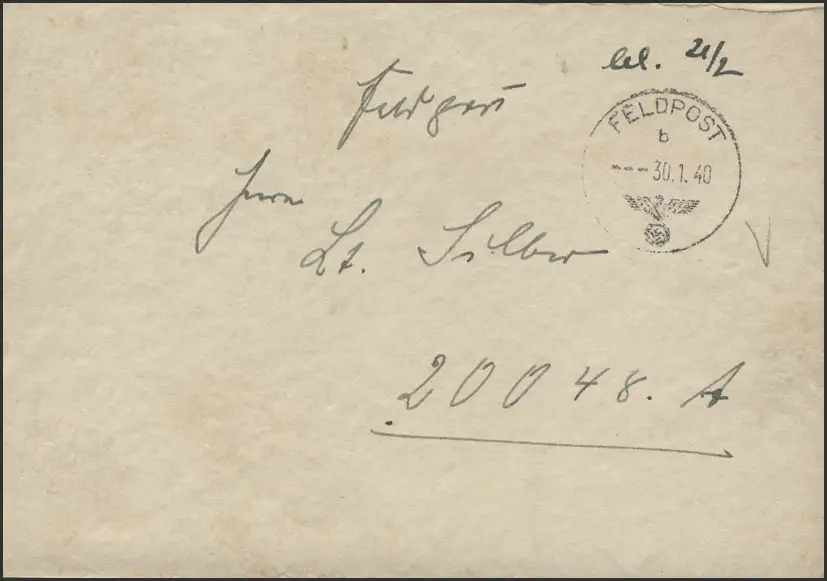 erl. 21/2
Feldpost
FELDPOST
b
---30.1.40
Herrn
Lt. Silber
20048. A